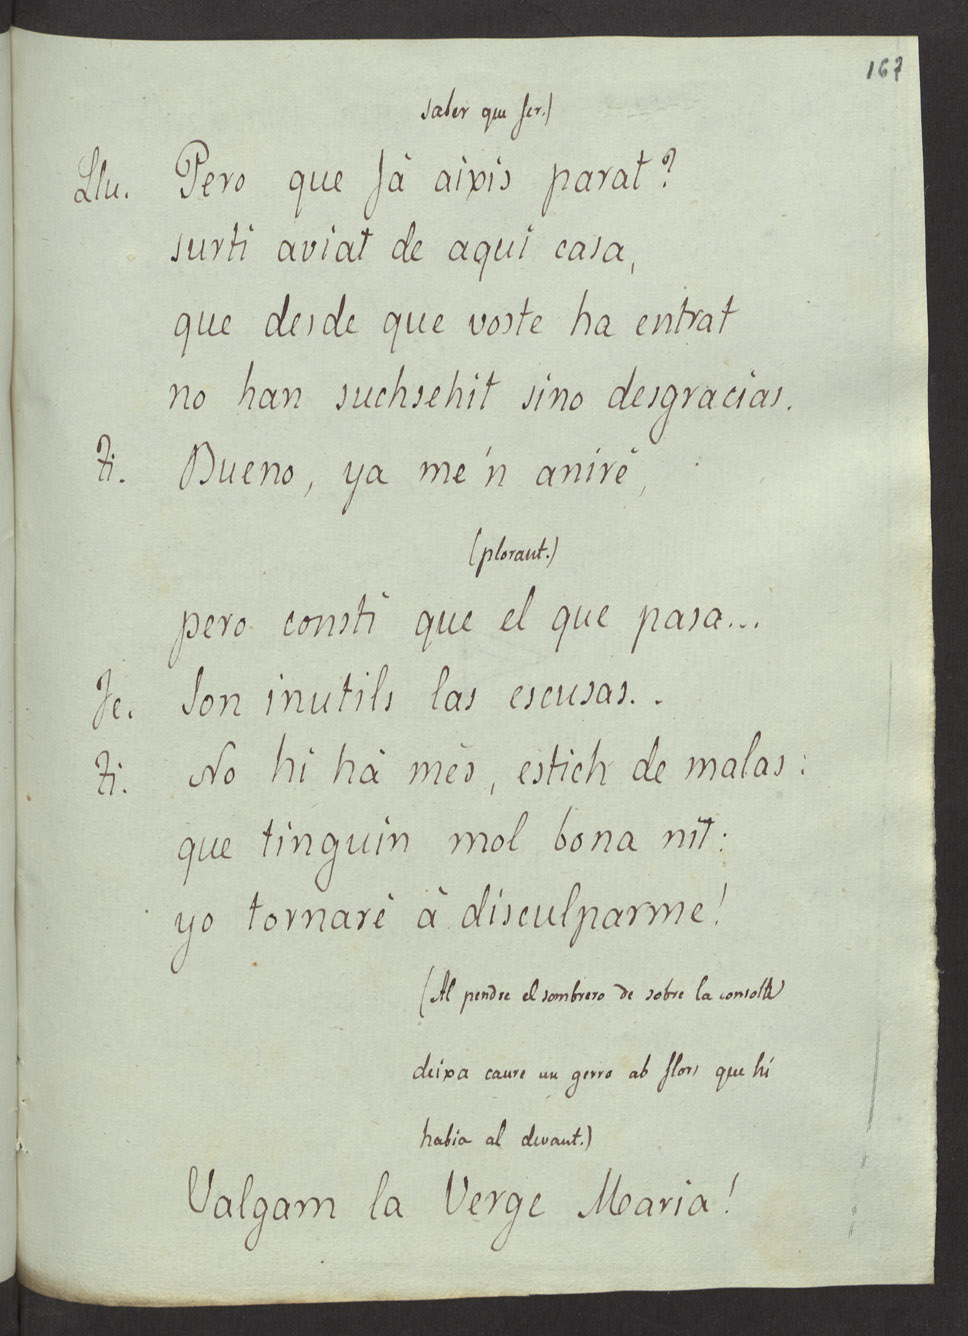 167
saber que fer.)
Llu. Pero que fá aixis parat?
surti aviat de aquí casa,
que desde que voste ha entrat
no han suchsehit sino desgracias.
Ti. Bueno, ya me'n aniré,
(plorant.)
pero consti que el que pasa...
Je. Son inutils las escusas..
Ti. No hi há més, estich de malas:
que tinguin mol bona nit:
yo tornaré á disculparme!
(Al pendre el sombrero de sobre la
deixa caure un gerro ab flors que hi
habia al devant.)
Valgam la Verge Maria!